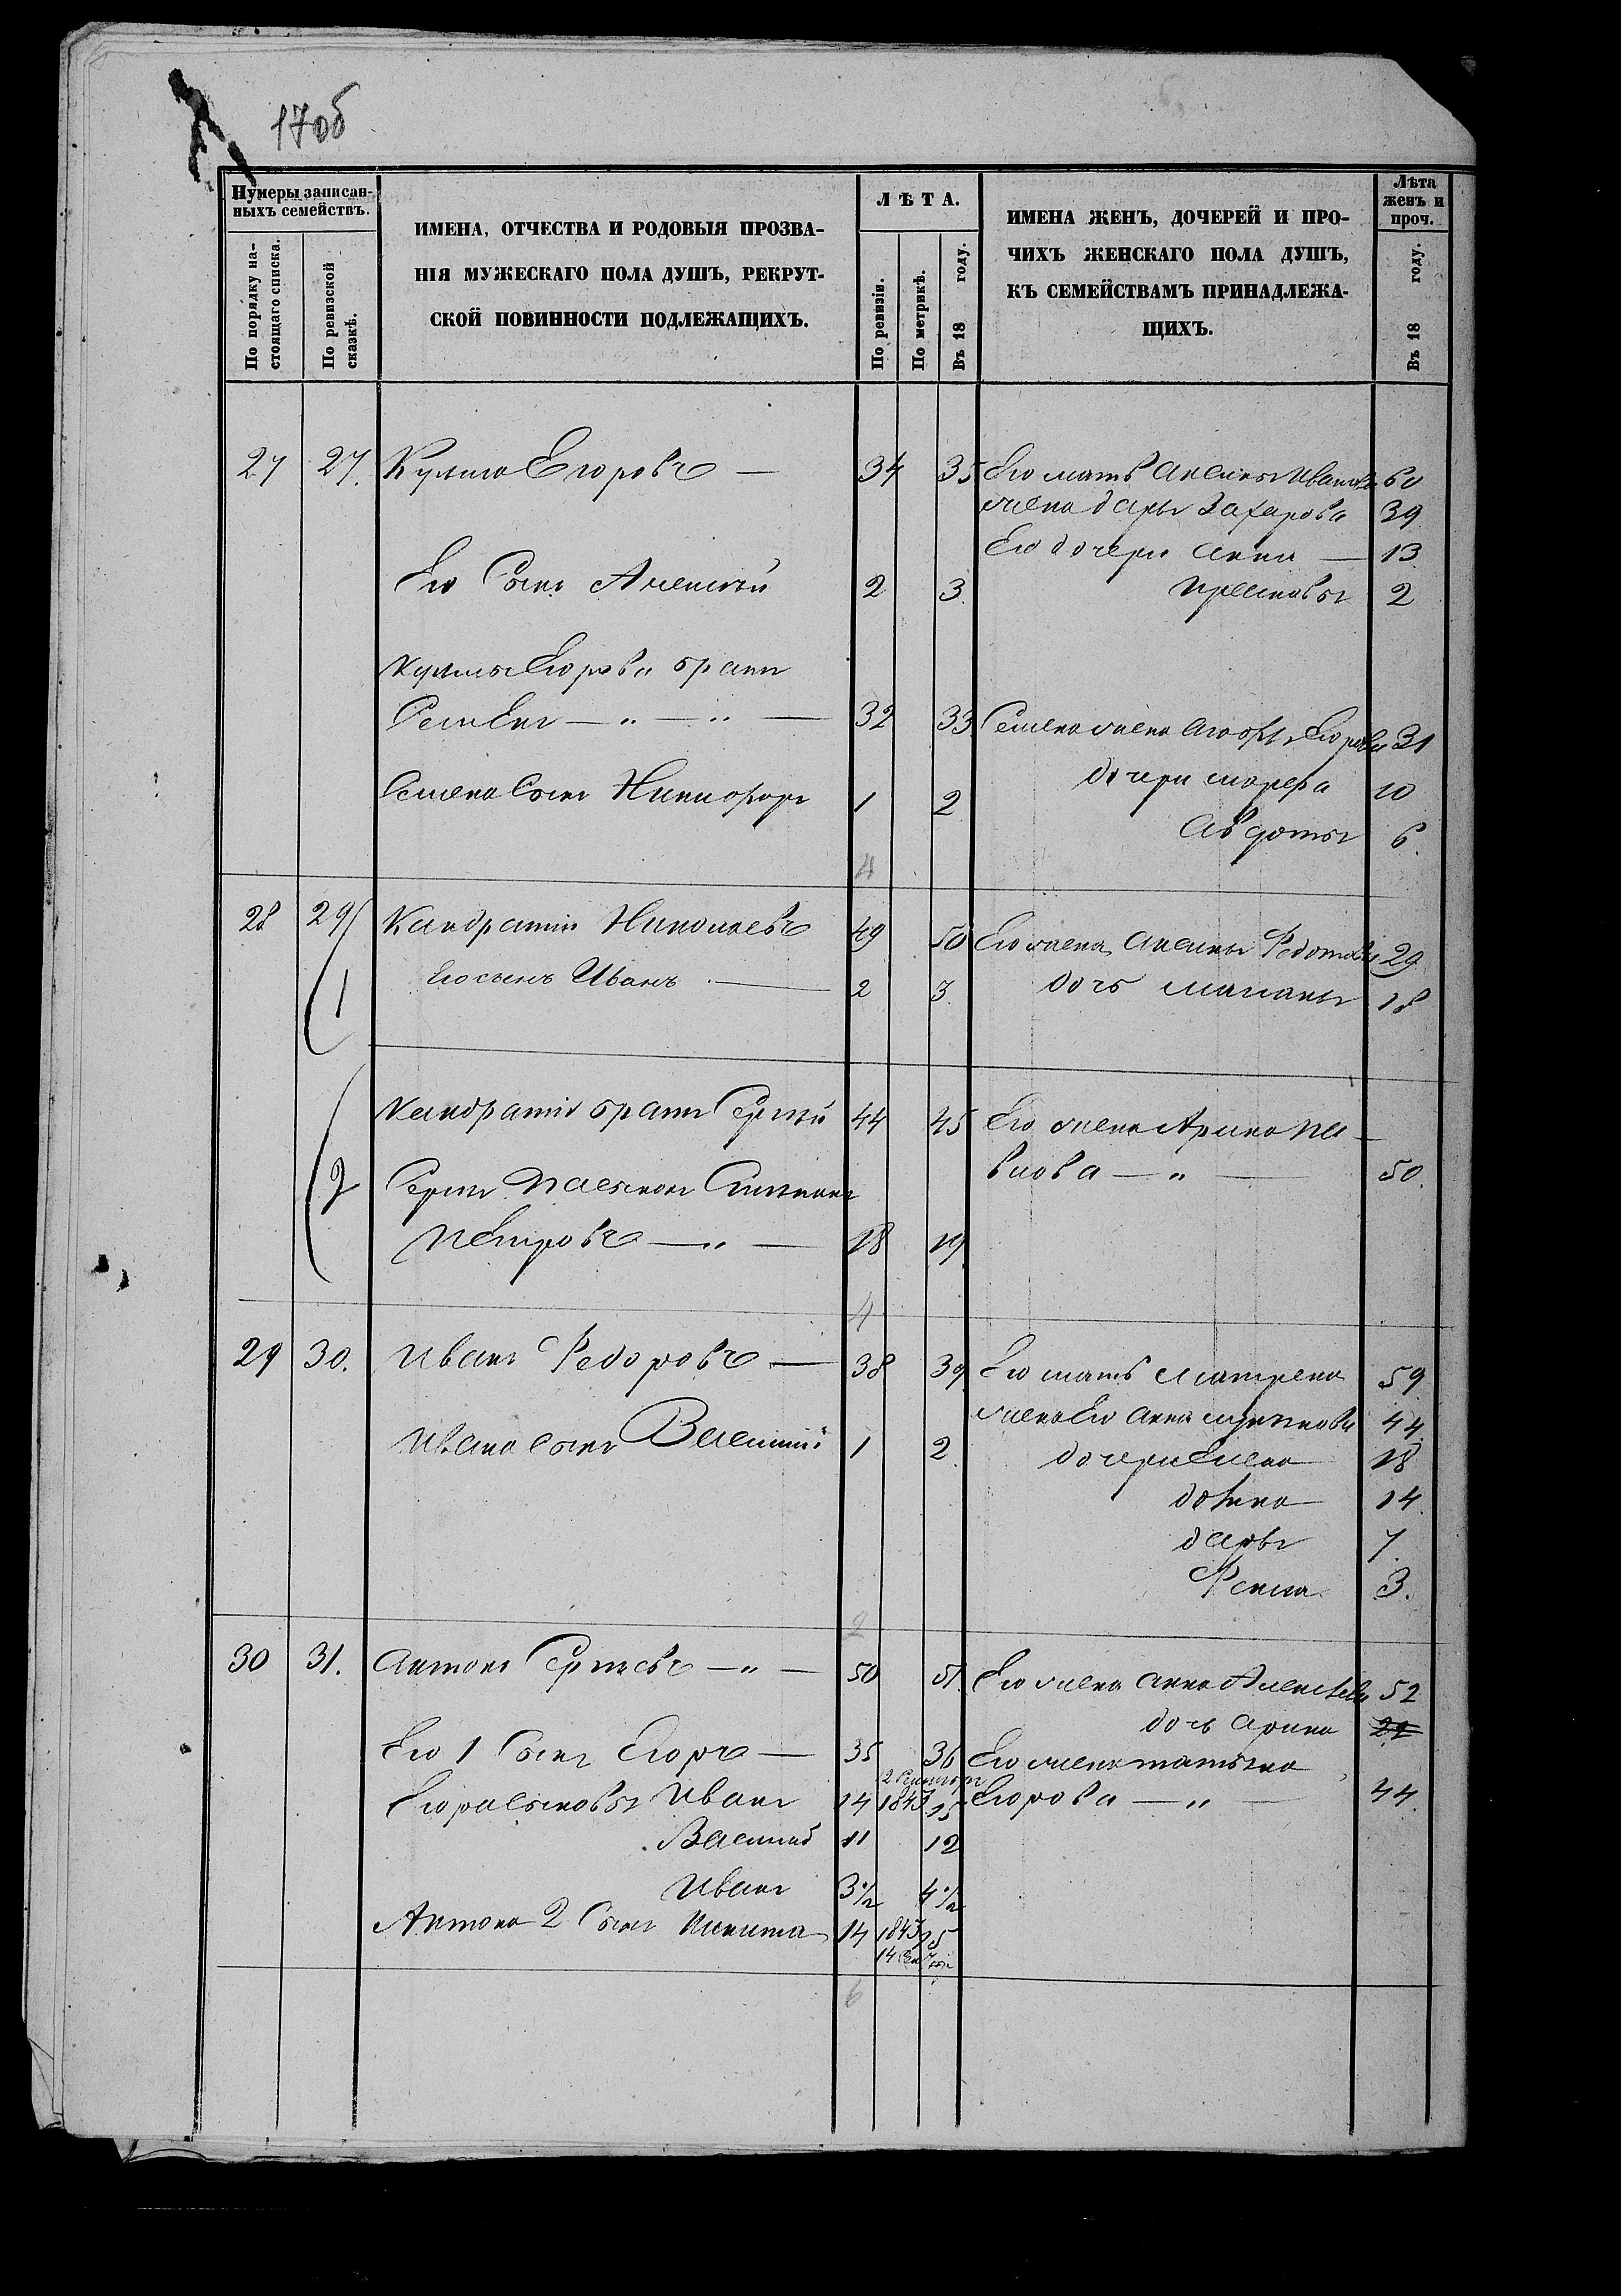 17об
Нумеры записан-
ныхъ семействъ.
По порядку на-
стоящаго списка.
По ревизской
сказкѣ.
ИМЕНА, ОТЧЕСТВА И РОДОВЫЯ ПРОЗВА-
НІЯ МУЖЕСКАГО ПОЛА ДУШЪ, РЕКРУТ-
СКОЙ ПОВИННОСТИ ПОДЛЕЖАЩИХЪ.
ЛѢТА.
По ревизіи.
По метрикѣ.
Въ 18 году.
ИМЕНА ЖЕНЪ, ДОЧЕРЕЙ И ПРО-
ЧИХЪ ЖЕНСКАГО ПОЛА ДУШЪ,
КЪ СЕМЕЙСТВАМЪ ПРИНАДЛЕЖА-
ЩИХЪ.
Лѣта
женъ и
проч.
Въ 18 году.
27 27. Кузма Егоровъ — 34 35 Его мать Аксинья Иванова 60
жена Дарья Захарова 39
Его дочери Анна — 13
Его Сынъ Алексѣй 2 3 Прасковья 2
Кузмы Егорова братъ
Семенъ — " — " — 32 33 Семена жена Егорова 31
Семена Сынъ Никифоръ 1 2 дочери 10
Авдотья 6.
4
28 29 Кандратий Николаевъ 49 50 Его жена Аксинья Федотова 29
1 Его сынъ Иванъ — 2 3 дочь 18
Кандратия братъ Сергѣй 44 45 Его жена Арина Па-
влова — " — 50.
2 Сергѣя
Петровъ — " — 18 19
4
29 30. Иванъ Федоровъ — 38 39 Его мать Матрена 59
жена Его Анна 44
Ивана сынъ Василий 1 2 дочери Елена 18
домна 14
дарья 7
Фекла 3.
2
30 31. Антонъ Сергѣевъ — " — 50 51 Его жена Анна Алексѣева 52
дочь Арина 21
Его 1 Сынъ Егоръ — 35 36 Его жена татьяна
Егора сыновья Иванъ 14 1843 15 Егорова — " — 44
Василий 11 12
Иванъ 3½ 4½
Антона 2 Сынъ Никита 14 1843 15
14
6